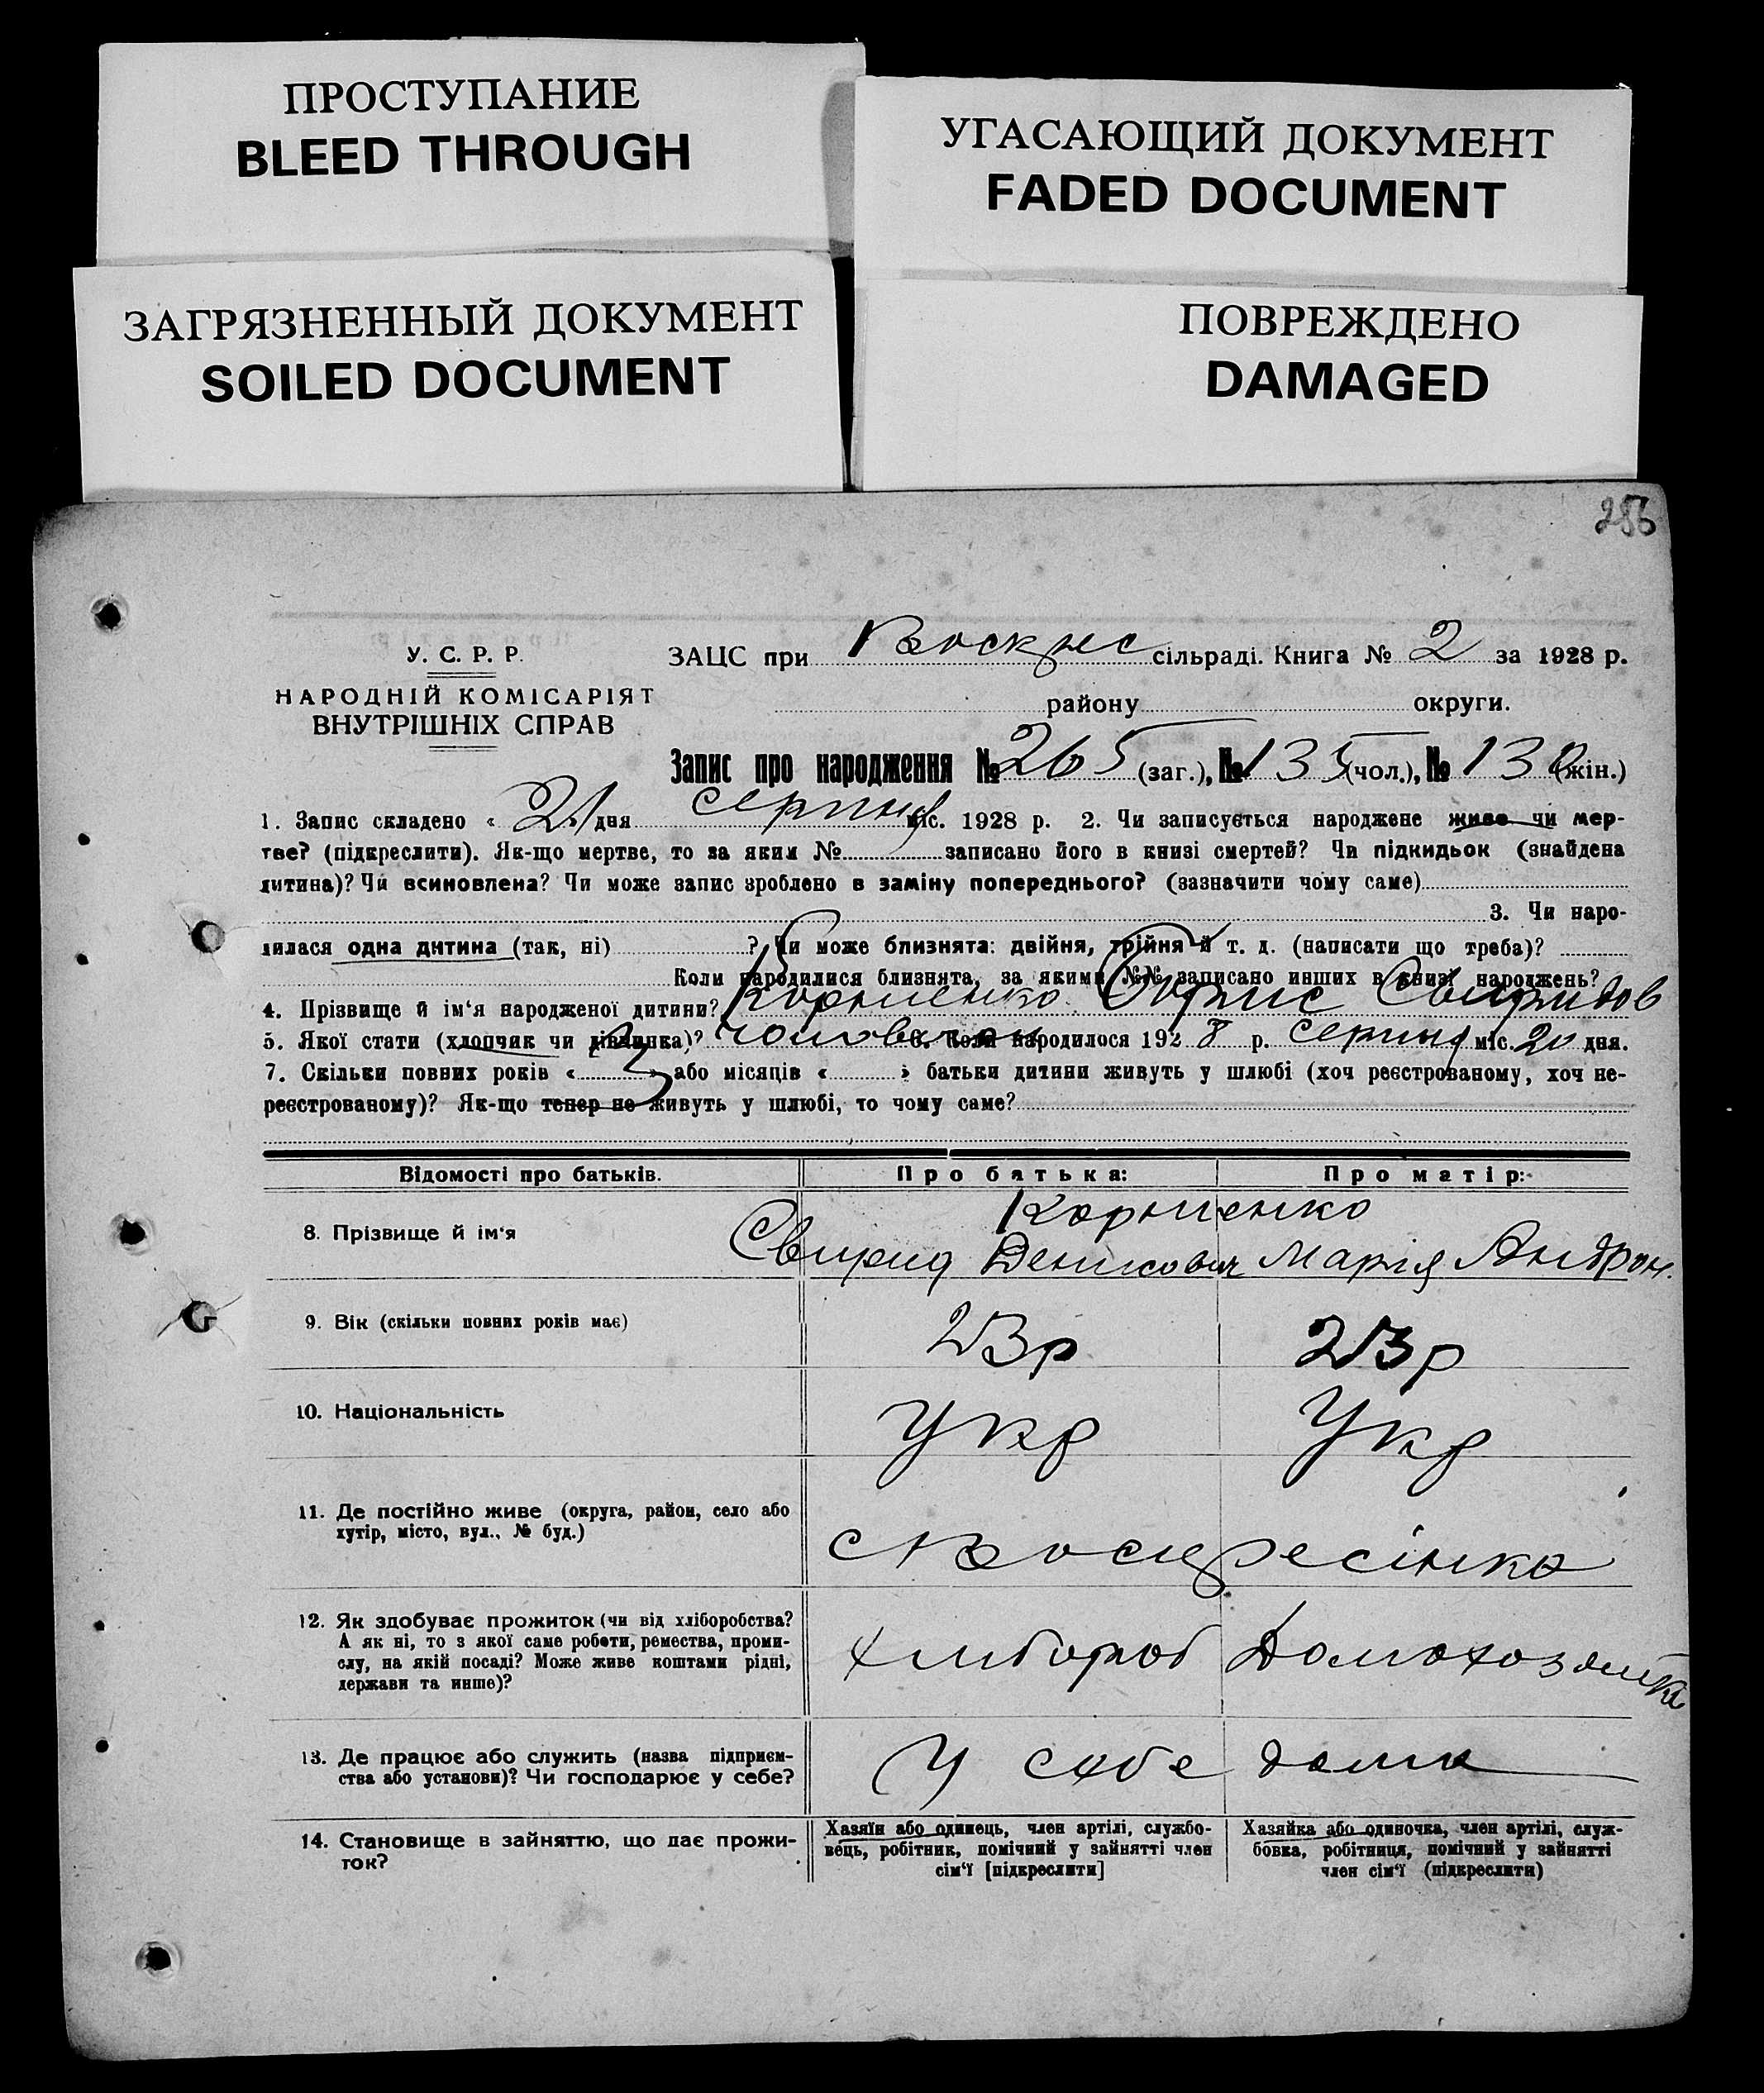 ПРОСТУПАНИЕ
BLEED THROUGH
УГАСАЮЩИЙ ДОКУМЕНТ
FADED DOCUMENT
ЗАГРЯЗНЕННЫЙ ДОКУМЕНТ
SOILED DOCUMENT
ПОВРЕЖДЕНО
DAMAGED
286
У. С. Р. Р.
НАРОДНІЙ КОМІСАРІЯТ
ВНУТРІШНІХ СПРАВ
ЗАЦС при Воскрес сільраді. Книга № 2 за 1928 р.
району округи.
Запис про народження № 265 (заг.), № 135 (чол.), № 130 (жін.)
1. Запис складено « 21 » дня серпня міс. 1928 р. 2. Чи записується народжене живе чи мер-
тве? (підкреслити). Як-що мертве, то за яким № записано його в книзі смертей? Чи підкидьок (знайдена
дитина)? Чи всиновлена? Чи може запис зроблено в заміну попереднього? (зазначити чому саме)
3. Чи наро-
дилася одна дитина (так, ні) ? Чи може близнята: двійня, трійня й т. д. (написати що треба)?
Коли народилися близнята, за якими №№ записано инших в книзі народжень?
4. Прізвище й ім‘я народженої дитини? Корниенко Борис Свиридов
5. Якої стати (хлопчик чи дівчинка)? чоловичои 6. Коли народилося 1928 р. серпня міс. 20 дня.
7. Скільки повних років « 3 » або місяців « » батьки дитини живуть у шлюбі (хоч реєстрованому, хоч не-
реєстрованому)? Як-що тепер не живуть у шлюбі, то чому саме?
Відомості про батьків. Про батька: Про матір:
8. Прізвище й ім‘я Корниенко
Свирид Денисович Марія Андрон.
9. Вік (скільки повних років має) 23р 23р
10. Національність Укр Укр
11. Де постійно живе (округа, район, село або
хутір, місто, вул., № буд.)
с Воскресінка
12. Як здобуває прожиток (чи від хліборобства?
А як ні, то з якої саме роботи, ремества, проми-
слу, на якій посаді? Може живе коштами рідні,
держави та инше)?
хлибороб Домохозяйка
13. Де працює або служить (назва підприєм-
ства або установи)? Чи господарює у себе?
У себе дома
14. Становище в зайняттю, що дає прожи-
ток?
Хазяїн або одинець, член артілі, службо-
вець, робітник, помічний у зайнятті член
сім‘ї [підкреслити]
Хазяйка або одиночка, член артілі, служ-
бовка, робітниця, помічний у зайнятті
член сім‘ї (підкреслити)